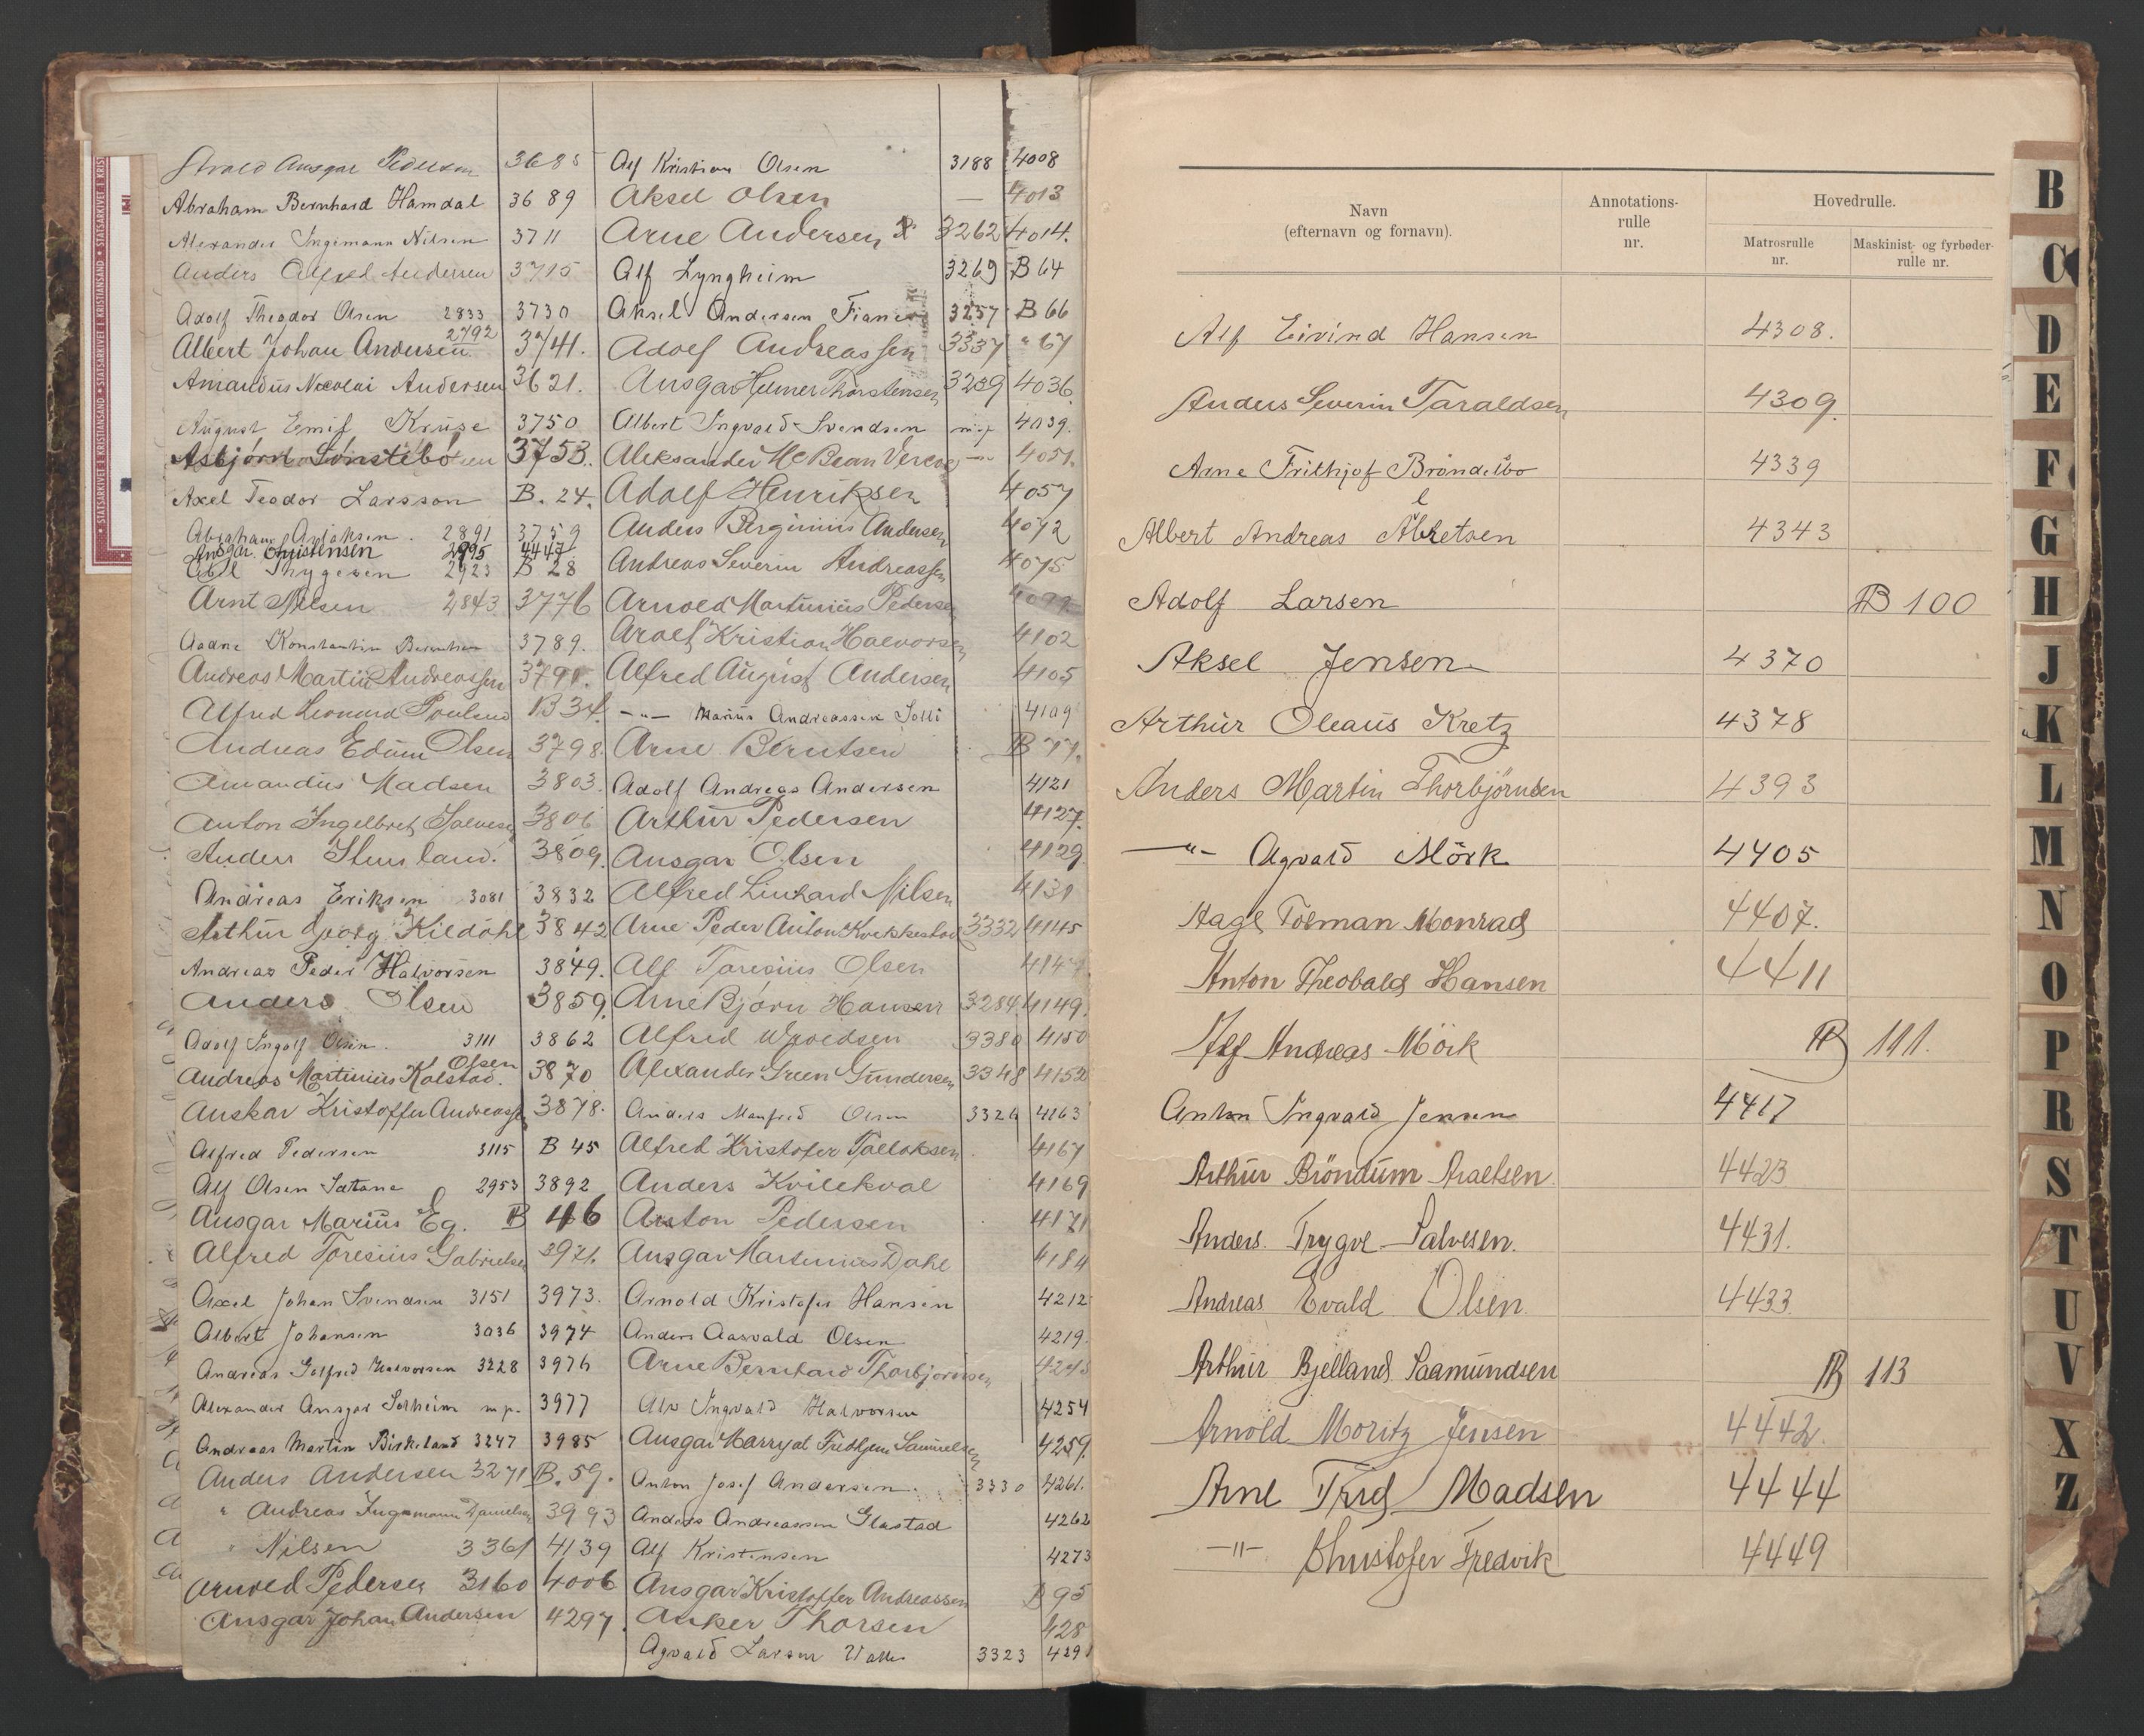 Ansgar Pedersen 3688
Abraham Bernhard Hamdal 3689
Alexander Ingemann Nilsen 3711
Anders Alfred Andersen 3715
Adolf Theodor Olsen 2833 3730
Albert Johan Andersen 2792 3741.
Amandus Nicolai Andersen 3621.
August Emil Kruse 3750
Asbjörn Lönstebö 3753.
Axel Teodor Larsson B. 24.
Abraham 2891 3759
Ansgar. Christensen 2995 4447
Thygesen 2923 B 28
Arnt Nilsen 2843 3776
Konstantin Berentsen 3789.
Andreas Martin Andreassen
Alfred Leonard B 34.
Andreas Edvin Olsen 3798.
Amandus Madsen 3803.
Anton Ingelbret Salvesen 3806
Anders 3809.
Andreas Eriksen 3081 3832
Arthur Georg Kildahl 3842
Andreas Peder Halvorsen 3849.
Anders Olsen 3859.
Adolf Ingolf Olsen. 3111 3862
Olsen
Andreas Martinius Kalstad. 3870
Anskar Kristoffer Andreassen 3878.
Alfred Pedersen 3115 B 45
Alf Olsen Sattane 2953 3892
Ansgar Marius Eg. B 46
Alfred Toresius Gabrielsen 3921.
Axel Johan Svendsen 3151 3973.
Albert Johansen 3036 3974
Andreas Gotfred Halvorsen 3228 3976
Alexander Ansgar Solheim m.p. 3977
Andreas Martin Birkeland 3247 3985
Anders Andersen 3271 B. 59.
" Andreas Ingemann Danielsen 3993
" Nilsen 3361 4139
Arnold Pedersen 3160 4006
Ansgar Johan Andersen 4297
Alf Kristian Olsen 3188 4008
Aksel Olsen — 4013
Arne Andersen 3262 4014.
Alf Lyngheim 3269 B 64
Aksel Andersen 3257 B 66
Adolf Andreassen 3337 " 67
Ansgar Helmer Thorstensen 3239 4036.
Albert Ingvald Svendsen 4039.
Aleksander McBean Vereide 4051.
Adolf Henriksen 4057
Anders Berginius Andersen 4072
Andreas Severin Andreassen 4075
Arnold Martinius Pedersen 4099
Adolf Kristian Halvorsen 4102
Alfred August Andersen 4105
—"— Marius Andreassen Solli 4109
Arne Berntsen B 77.
Adolf Andreas Andersen 4121
Arthur Pedersen 4127.
Ansgar Olsen 4129
Alfred Linhard Nilsen 4131
Arne Peder Anton Kvekkestad 3332 4145
Alf Toresius Olsen 4147
Arne Bjørn Hansen 3284. 4149.
Alfred 3380 4150
Alexander Green Gundersen 3348 4152
Anders Manfred Olsen 3326 4163
Alfred Kristofer Talloksen 4167
Anders Kvilekval 4169
Anton Pedersen 4171
Ansgar Martinius Dahl 4184
Arnold Kristofer Hansen 4212
Anders Aasvald Olsen 4219.
Arne Bernhard Thorbjørnsen 4245
Alv Ingvald Halvorsen 4254
Ansgar Marryat Fredtjen Samuelsen 4259.
Anton Josef Andersen. 3330 4261.
Anders Andreassen Glastad 4262
Alf Kristensen 4273
Ansgar Kristoffer Andreassen B 95
Anker Thorsen 428
Agvald Larsen 3323 429
Navn
(efternavn og fornavn).
Annotations-
rulle
nr.
Hovedrulle.
Matrosrulle
nr.
Maskinist- og fyrbøder-
rulle nr.
Alf Eivind Hansen 4308.
Anders Severin Taraldsen 4309.
Arne Frithjof Bröndelbo 4339
Albert Andreas Albretsen 4343
Adolf Larsen B 100
Aksel Jensen 4370
Arthur Oleaus Kretz 4378
Anders Martin Thorbjörnsen 4393
—"— Agvald Mörk 4405
Aage Tolman Monrad 4407.
Anton Theobald Hansen 4411
Alf Andreas Mörk B 111.
Anton Ingvald Jensen 4417
Arthur Bröndum Axelsen 4423
Anders. Trygve Salvesen. 4431.
Andreas Evald Olsen 4433.
Arthur Bjelland Saamundsen B 113
Arnold Moritz Jensen 4442.
Arne Tryg Madsen 4444
—"— Christofer Fredvik 4449
B
C
D
E
F
G
H
J
K
L
M
N
O
P
R
S
T
U
V
X
Z
STATSARKIVET I KRISTIANSAND